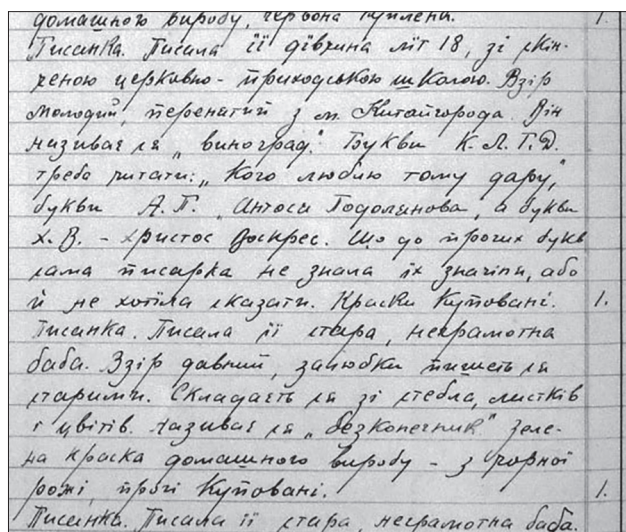 домашного виробу, червона куплена. 1.
Писанка. Писала її дївчина лїт 18, зі скін-
ченою церковно-приходською школою. Взір
молодий, перенятий з м. Китайгорода. Він
називає ся „виноград". Букви К. Л. Т. Д.
треба читати: „Кого люблю тому дару",
букви А. П. „Антося Подолянова", а букви
Х. В. – Христос Воскрес. Що до прочих букв
сама писарка не знала їх значіня, або
й не хотїла сказати. Краски куповані. 1.
Писанка. Писала її стара, неграмотна
баба. Взір давний, залюбки пишеть ся
старими. Складаєть ся зі стебла, листків
і цвітів. Називає ся „безконечник" Зеле-
на краска домашного виробу – з чорної
рожі, прочі куповані. 1.
Писанка. Писала її стара, неграмотна баба.